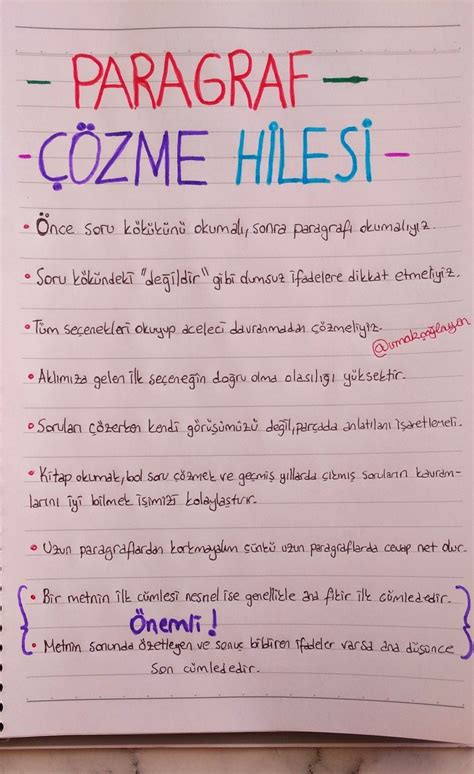 - PARAGRAF -
- ÇÖZME HİLESİ -
• Önce soru kökükünü okumalı, sonra paragrafı okumalıyız.
• Soru kökündeki "değildir" gibi olumsuz ifadelere dikkat etmeliyiz.
• Tüm seçenekleri okuyup aceleci davranmadan çözmeliyiz.
• Aklımıza gelen ilk seçeneğin doğru olma olasılığı yüksektir.
• Soruları çözerken kendi görüşümüzü değil, parçada anlatılanı işaretlemeli.
• Kitap okumak, bol soru çözmek ve geçmiş yıllarda çıkmış soruların kavram-
larını iyi bilmek işimizi kolaylaştır.
• Uzun paragraflardan korkmayalım çünkü uzun paragraflarda cevap net dur.
• Bir metnin ilk cümlesi nesnel ise genellikle ana fikir ilk cümlededir.
Önemli!
• Metnin sonunda özetleyen ve sonuç bildiren ifadeler varsa ana düşünce
son cümlededir.